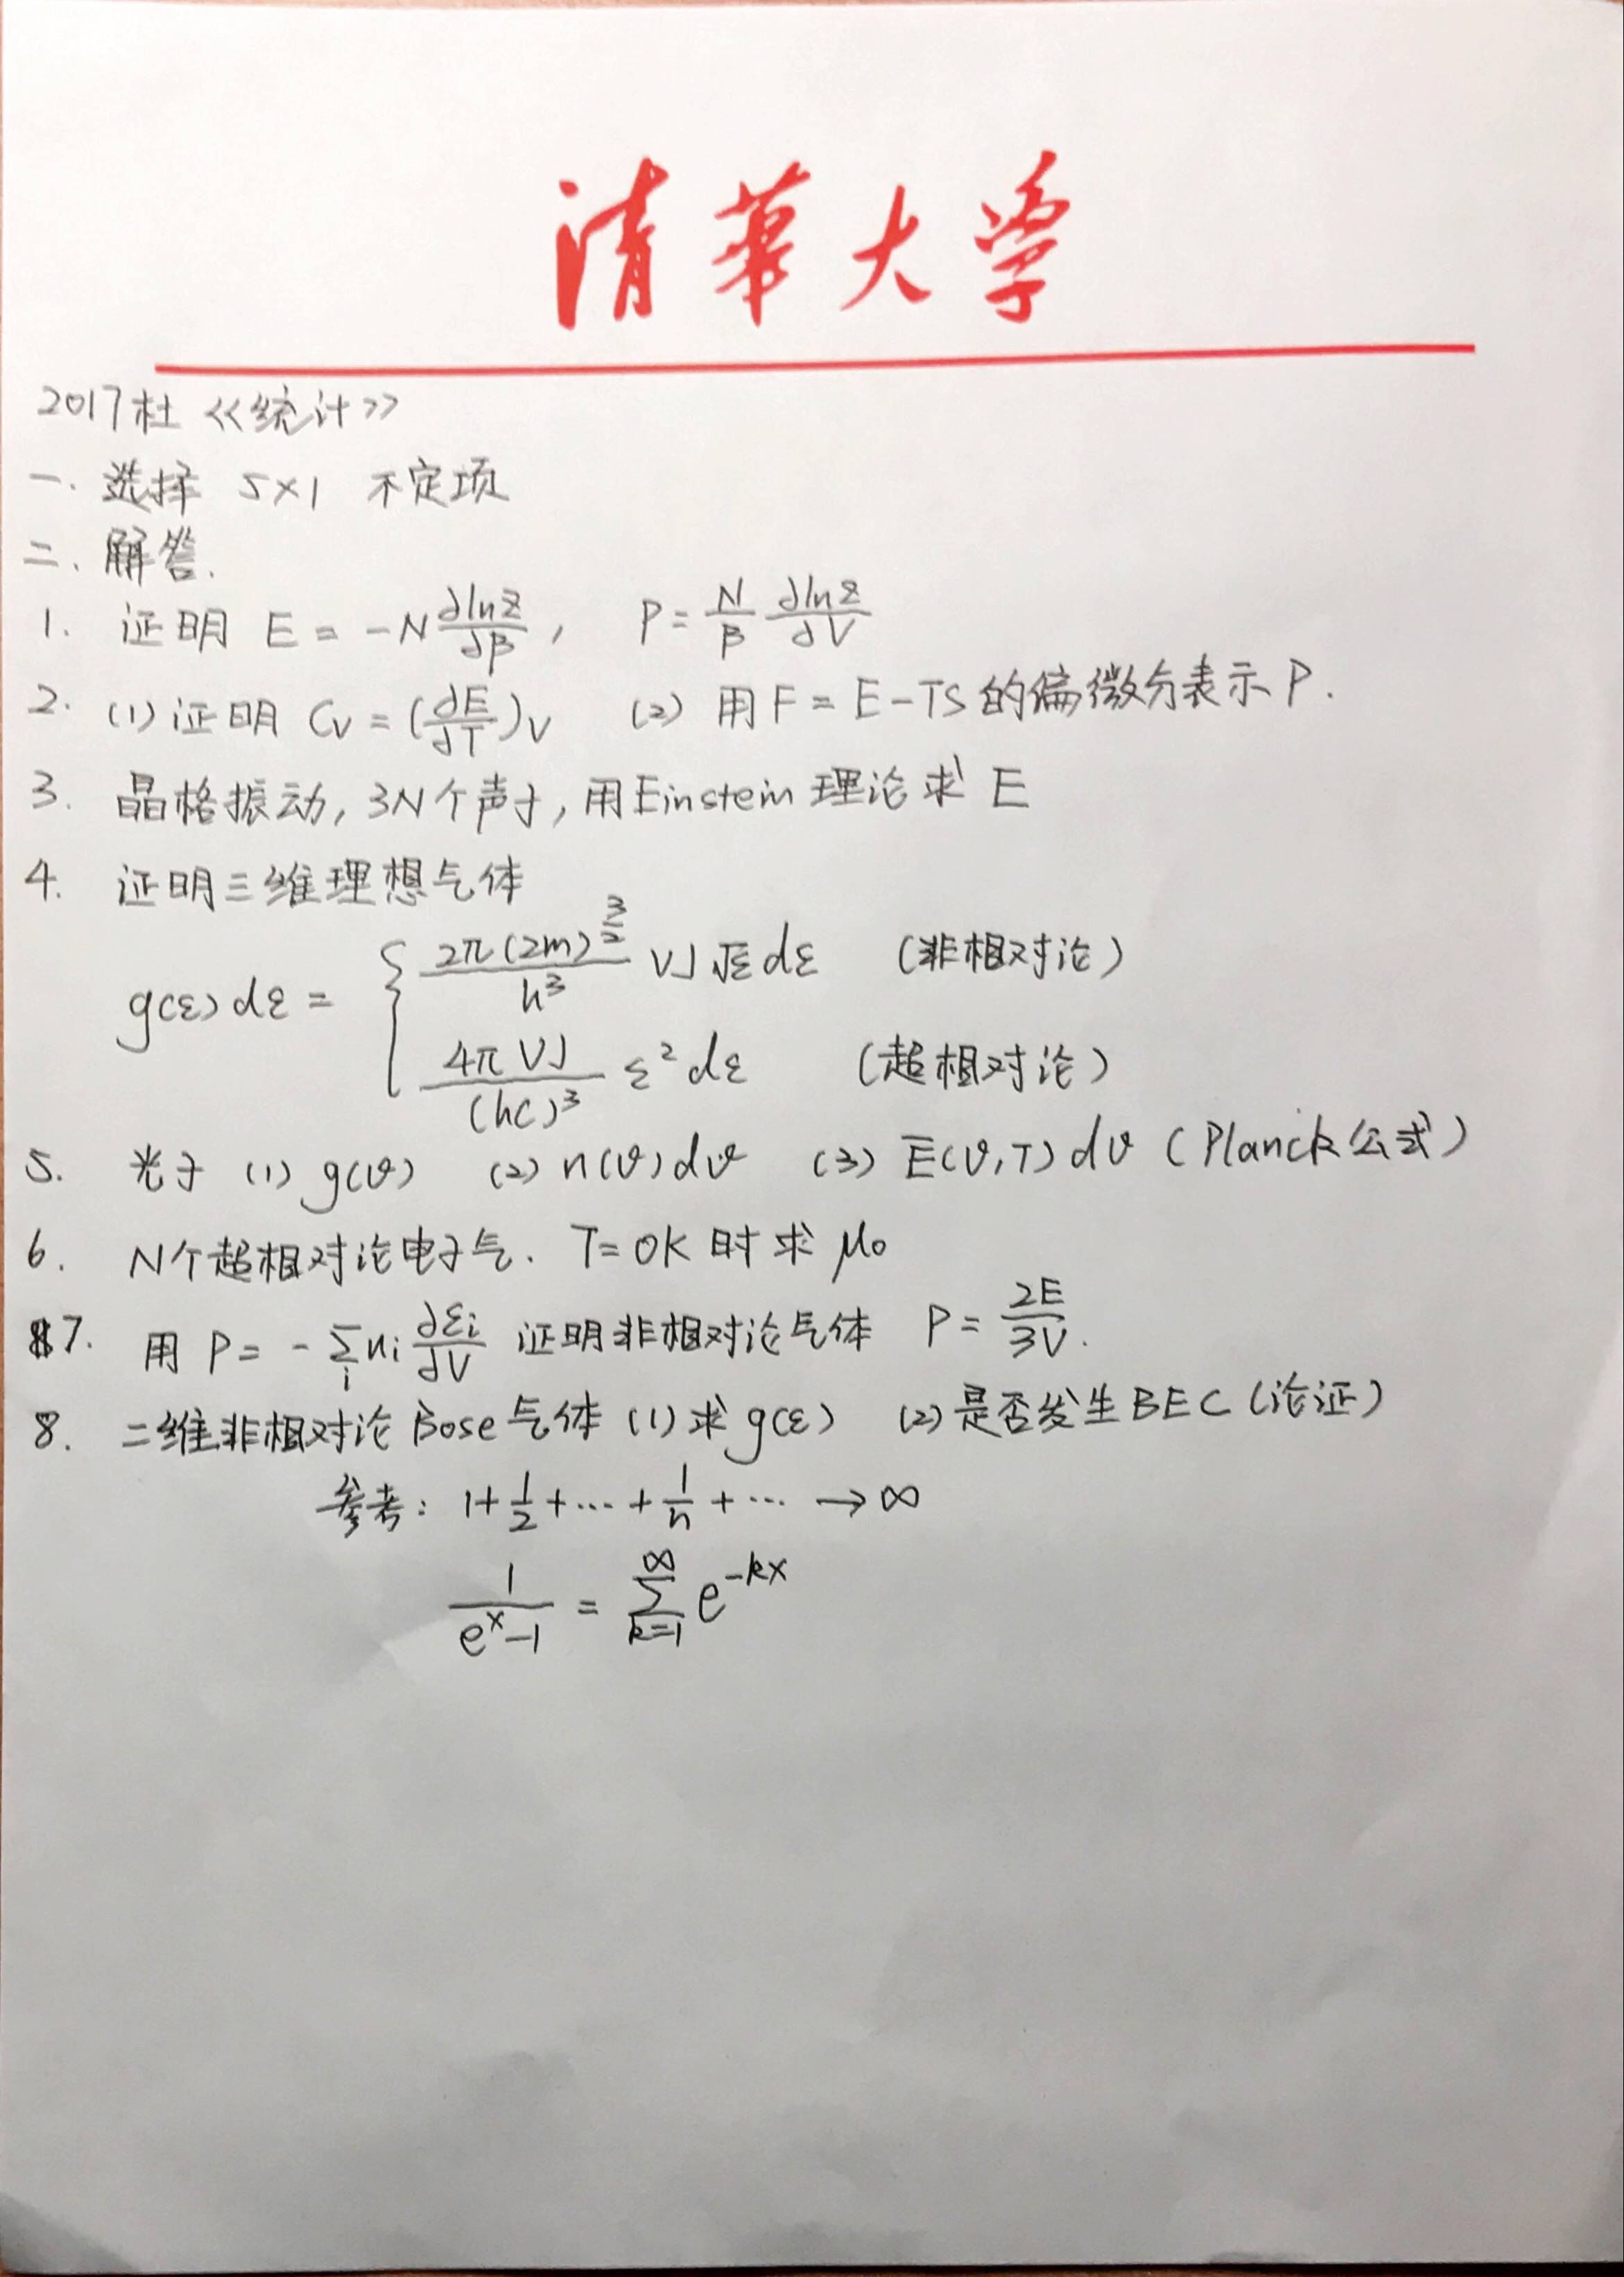 清華大学
2017杜《统计》
一. 选择 5×1 不定项
二. 解答.
1. 证明 E = -N ∂lnz/∂β, P = N/β ∂lnz/∂V
2. (1) 证明 Cv = (∂E/∂T)v (2) 用 F = E-TS 的偏微分表示 P.
3. 晶格振动, 3N个声子, 用Einstein理论求 E
4. 证明三维理想气体
g(ε)dε = { 2π(2m)^(3/2)/h³ VJ √ε dε (非相对论)
4πVJ/(hc)³ ε² dε (超相对论)
5. 光子 (1) g(ν) (2) n(ν)dν (3) E(ν,T)dν (Planck公式)
6. N个超相对论电子气. T=0K时求 μ₀
7. 用 P = -∑i ni ∂εi/∂V 证明非相对论气体 P = 2E/3V.
8. 二维非相对论Bose气体 (1) 求g(ε) (2) 是否发生BEC (论证)
参考: 1+1/2+⋯+1/n+⋯ →∞
1/(e^x-1) = ∑_{k=1}^∞ e^{-kx}